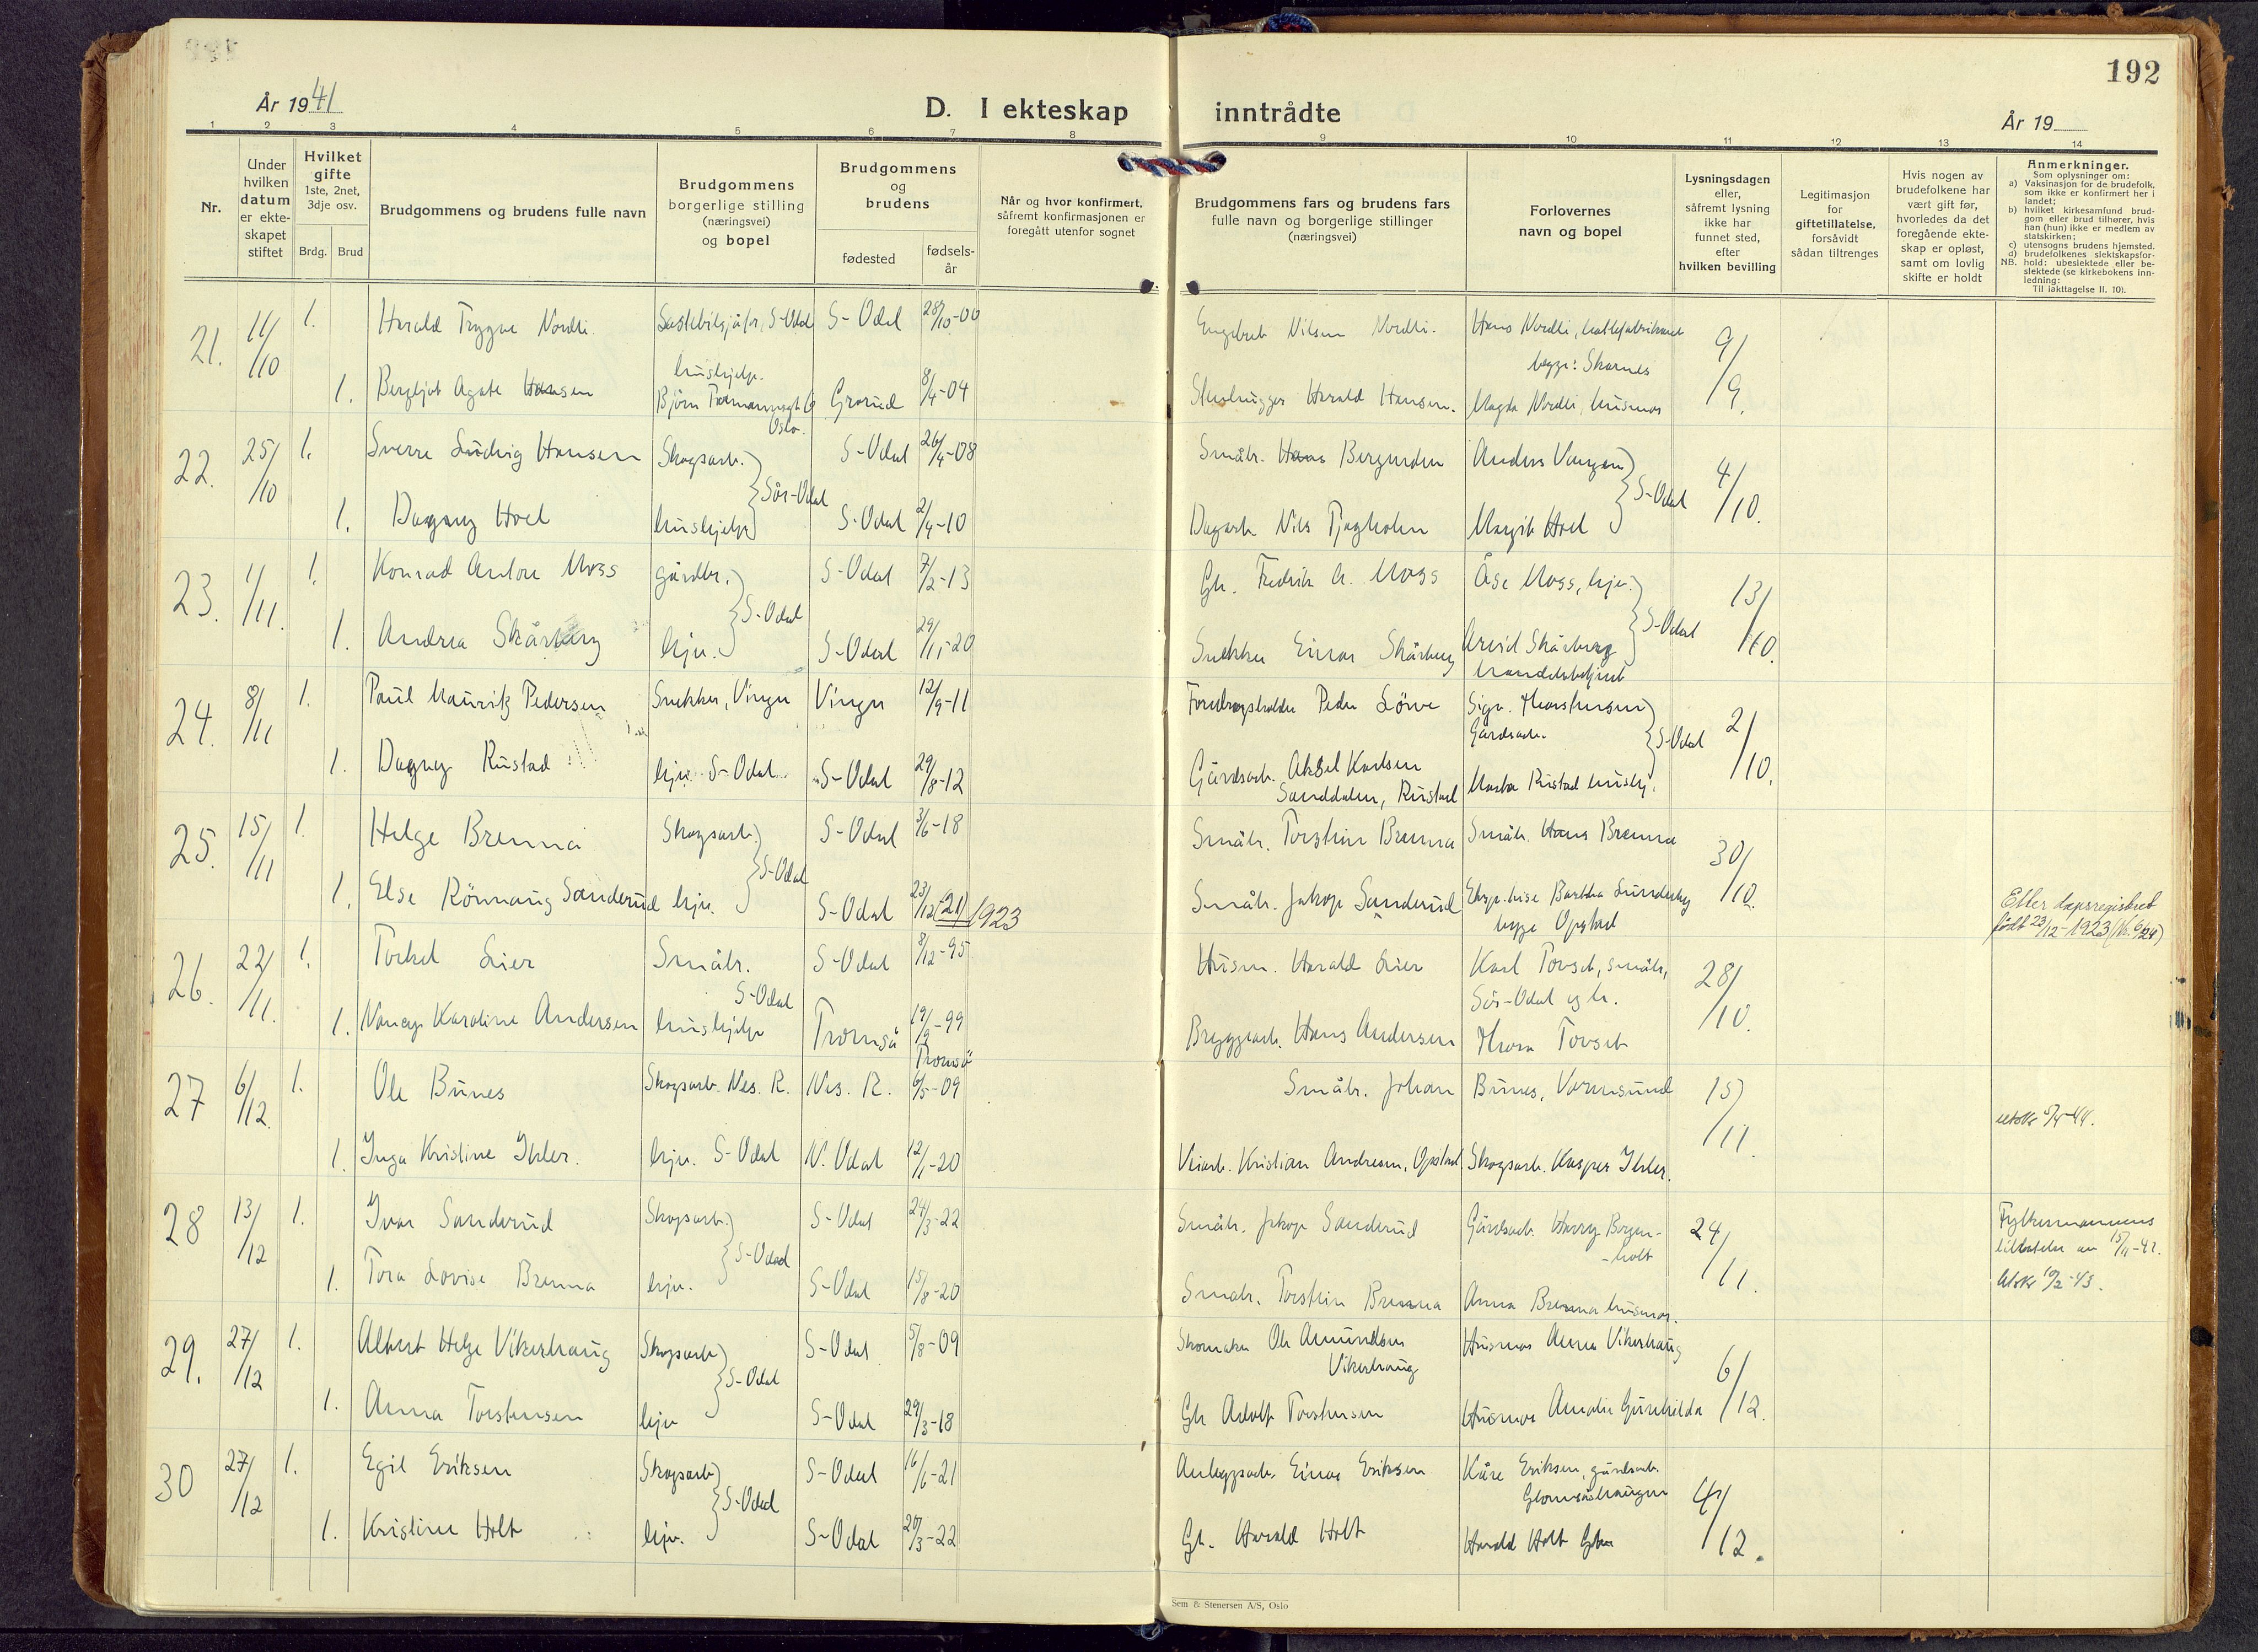 192
År 1941
D. I ekteskap inntrådte
År 19
1 2 3 4 5 6 7 8 9 10 11 12 13 14
Nr.
Under hvilken datum er ekteskapet stiftet
Hvilket gifte
1ste, 2net, 3dje osv.
Brdg. Brud
Brudgommens og brudens fulle navn
Brudgommens borgerlige stilling (næringsvei) og bopel
Brudgommens og brudens
fødested
fødselsår
Når og hvor konfirmert, såfremt konfirmasjonen er foregått utenfor sognet
Brudgommens fars og brudens fars fulle navn og borgerlige stillinger (næringsvei)
Forlovernes navn og bopel
Lysningsdagen eller, såfremt lysning ikke har funnet sted, efter hvilken bevilling
Legitimasjon for giftetillatelse, forsåvidt sådan tiltrenges
Hvis nogen av brudefolkene har vært gift før, hvorledes da det foregående ekteskap er opløst, samt om lovlig skifte er holdt
Anmerkninger.
Som oplysninger om:
a) Vaksinasjon for de brudefolk, som ikke er konfirmert her i landet;
b) hvilket kirkesamfund brudgom eller brud tilhører, hvis han (hun) ikke er medlem av statskirken;
c) utensogns brudens hjemsted.
d) brudefolkenes slektskapsforhold: ubeslektede eller beslektede (se kirkebokens innledning:
NB. Til iakttagelse II. 10).
21. 11/10 1. Harald Trygve Nordli. S-Odal S-Odal 28/10-00 Engebret Nilsen Nordli. Hans Nordli, 9/9.
begge: Skarnes
1. Bergljot Agate Hansen hushjelp. Bjørn Oslo. Grorud 8/4-04 Harald Hansen. Magda Nordli, husmor
22. 25/10 1. Sverre Ludvig Hansen Skogsarb. S-Odal 26/4-08 Småbr. Hans Bergerden Anders Vangen 4/10.
Sør-Odal S-Odal
1. Dagny Hoel hushjelp S-Odal 2/4-10 Dagarb. Nils Margit Hoel
23. 1/11. 1. Konrad Anton Moss gårdbr. S-Odal 7/2-13 Gbr. Fredrik A. Moss Åse Moss, hjv. 13/10.
S-Odal S-Odal
1. Andrea Skårberg hjv. S-Odal 29/11-20 Snekker Einar Skårberg Arvid Skårberg
handelsbetjent
24. 8/11 1. Paul Mauritz Pedersen Snekker, Vinger Vinger 12/9-11 Foredragsholder Peder Löwe Sigv. Thorstensen 2/10.
Gårdsarb. S-Odal
1. Dagny Rustad hjv. S-Odal S-Odal 29/8-12 Gårdsarb. Aksel Karlsen Sanddalen, Rustad Marta Rustad hushj.
25. 15/11 1. Helge Brenna Skogsarb. S-Odal 3/6-18 Småbr. Torstein Brenna Småbr. Hans Brenna 30/10.
S-Odal
1. Else Rönnaug Sanderud hjv. S-Odal 23/12 (21) 1923 Småbr. Jakop Sanderud Bertha Sunderby
begge Opstad
Efter dåpsregistret
født 23/12-1923 (Nr. 6/24)
26. 22/11. 1. Torkel Lier Småbr. S-Odal 8/12-95 Husm. Harald Lier Karl Tovset, småbr., 28/10.
S-Odal Sør-Odal og h.
1. Nancy Karoline Andersen hushjelp Tromsø 19/9-99 Bryggearb. Hans Andersen Thora Tovset
Tromsø
27 6/12. 1. Ole Bunes Skogsarb. Nes. R. Nes. R. 6/5-09 Småbr. Johan Bunes, Vormsund 15/11.
utskr 5/4-44.
1. Inga Kristine Ihler. hjv. S-Odal N. Odal 12/1-20 Veiarb. Kristian Andresen, Opstad Skogsarb. Kasper Ihler.
28 13/12 1. Ivar Sanderud Skogsarb. S-Odal 24/3-22 Småbr. Jakop Sanderud Gårdsarb. Harry Bergerholt 24/11.
S-Odal
Fylkesmannens
tillatelse av 15/11-41.
1. Tora Lovise Brenna hjv. S-Odal 15/8-20 Småbr. Torstein Brenna Anna Brenna husmor.
Utskr 10/2-43.
29. 27/12 1. Albert Helge Vikerhaug Skogsarb S-Odal 5/8-09 Skomaker Ole Amundsen Vikerhaug Husmor Anna Vikerhaug 6/12.
S-Odal
1. Anna Torstensen hjv S-Odal 29/3-18 Gbr Adolf Torstensen Husmor Amalie Gunhilda
30 27/12 1. Egil Eriksen Skogsarb S-Odal 16/6-21 Anleggsarb. Einar Eriksen Kåre Eriksen, gårdsarb. 4/12.
S-Odal
1. Kristine Holt hjv. S-Odal 20/3-22 Gbr. Harald Holt Harald Holt Gbr
Sem & Stenersen A/S, Oslo